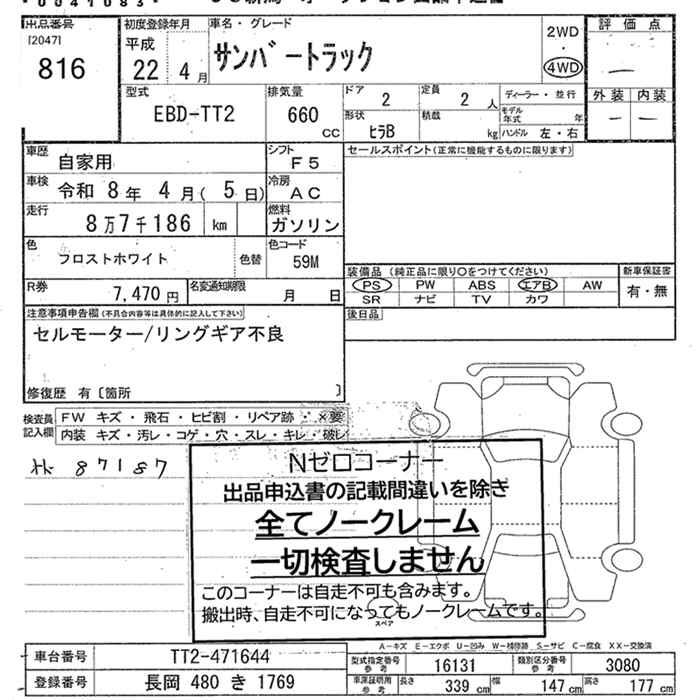 0041083
出品番号 初度登録年月 車名・グレード 2WD 評価点
[2047] 平成 ・
816 22年 4月 サンバートラック 4WD ―
型式 排気量 ドア 2 定員 2人 ディーラー・並行 外装 内装
EBD-TT2 660 CC 形状 ヒラB 積載 kg モデル年式 年 ― ―
ハンドル 左・右
車歴 自家用 シフト F5 セールスポイント(正常に機能するものに限ります)
車検 令和 8年 4月( 5日) 冷房 AC
走行 8万7千186 km 燃料 ガソリン
色 フロストホワイト 色替 色コード 59M
装備品 (純正品に限り〇をつけてください) 新車保証書
R券 7,470円 名変通知期限 月 日 PS PW ABS エアB AW 有・無
SR ナビ TV カワ
注意事項申告欄(不具合内容等は具体的に記入して下さい) 後日品
セルモーター/リングギア不良
修復歴 有〔箇所 〕
検査員 FW キズ・飛石・ヒビ割・リペア跡・×要
記入欄 内装 キズ・汚レ・コゲ・穴・スレ・キレ・破レ
87187
Nゼロコーナー
出品申込書の記載間違いを除き
全てノークレーム
一切検査しません
このコーナーは自走不可も含みます。
搬出時、自走不可になってもノークレームです。
スペア
A-キズ E-エクボ U-凹み W-補修跡 S-サビ C-腐食 XX-交換済
車台番号 TT2-471644 型式指定番号 参考 16131 類別区分番号 参考 3080
登録番号 長岡 480 き 1769 車庫証明用 参考 長さ 339 cm 幅 147 cm 高さ 177 cm